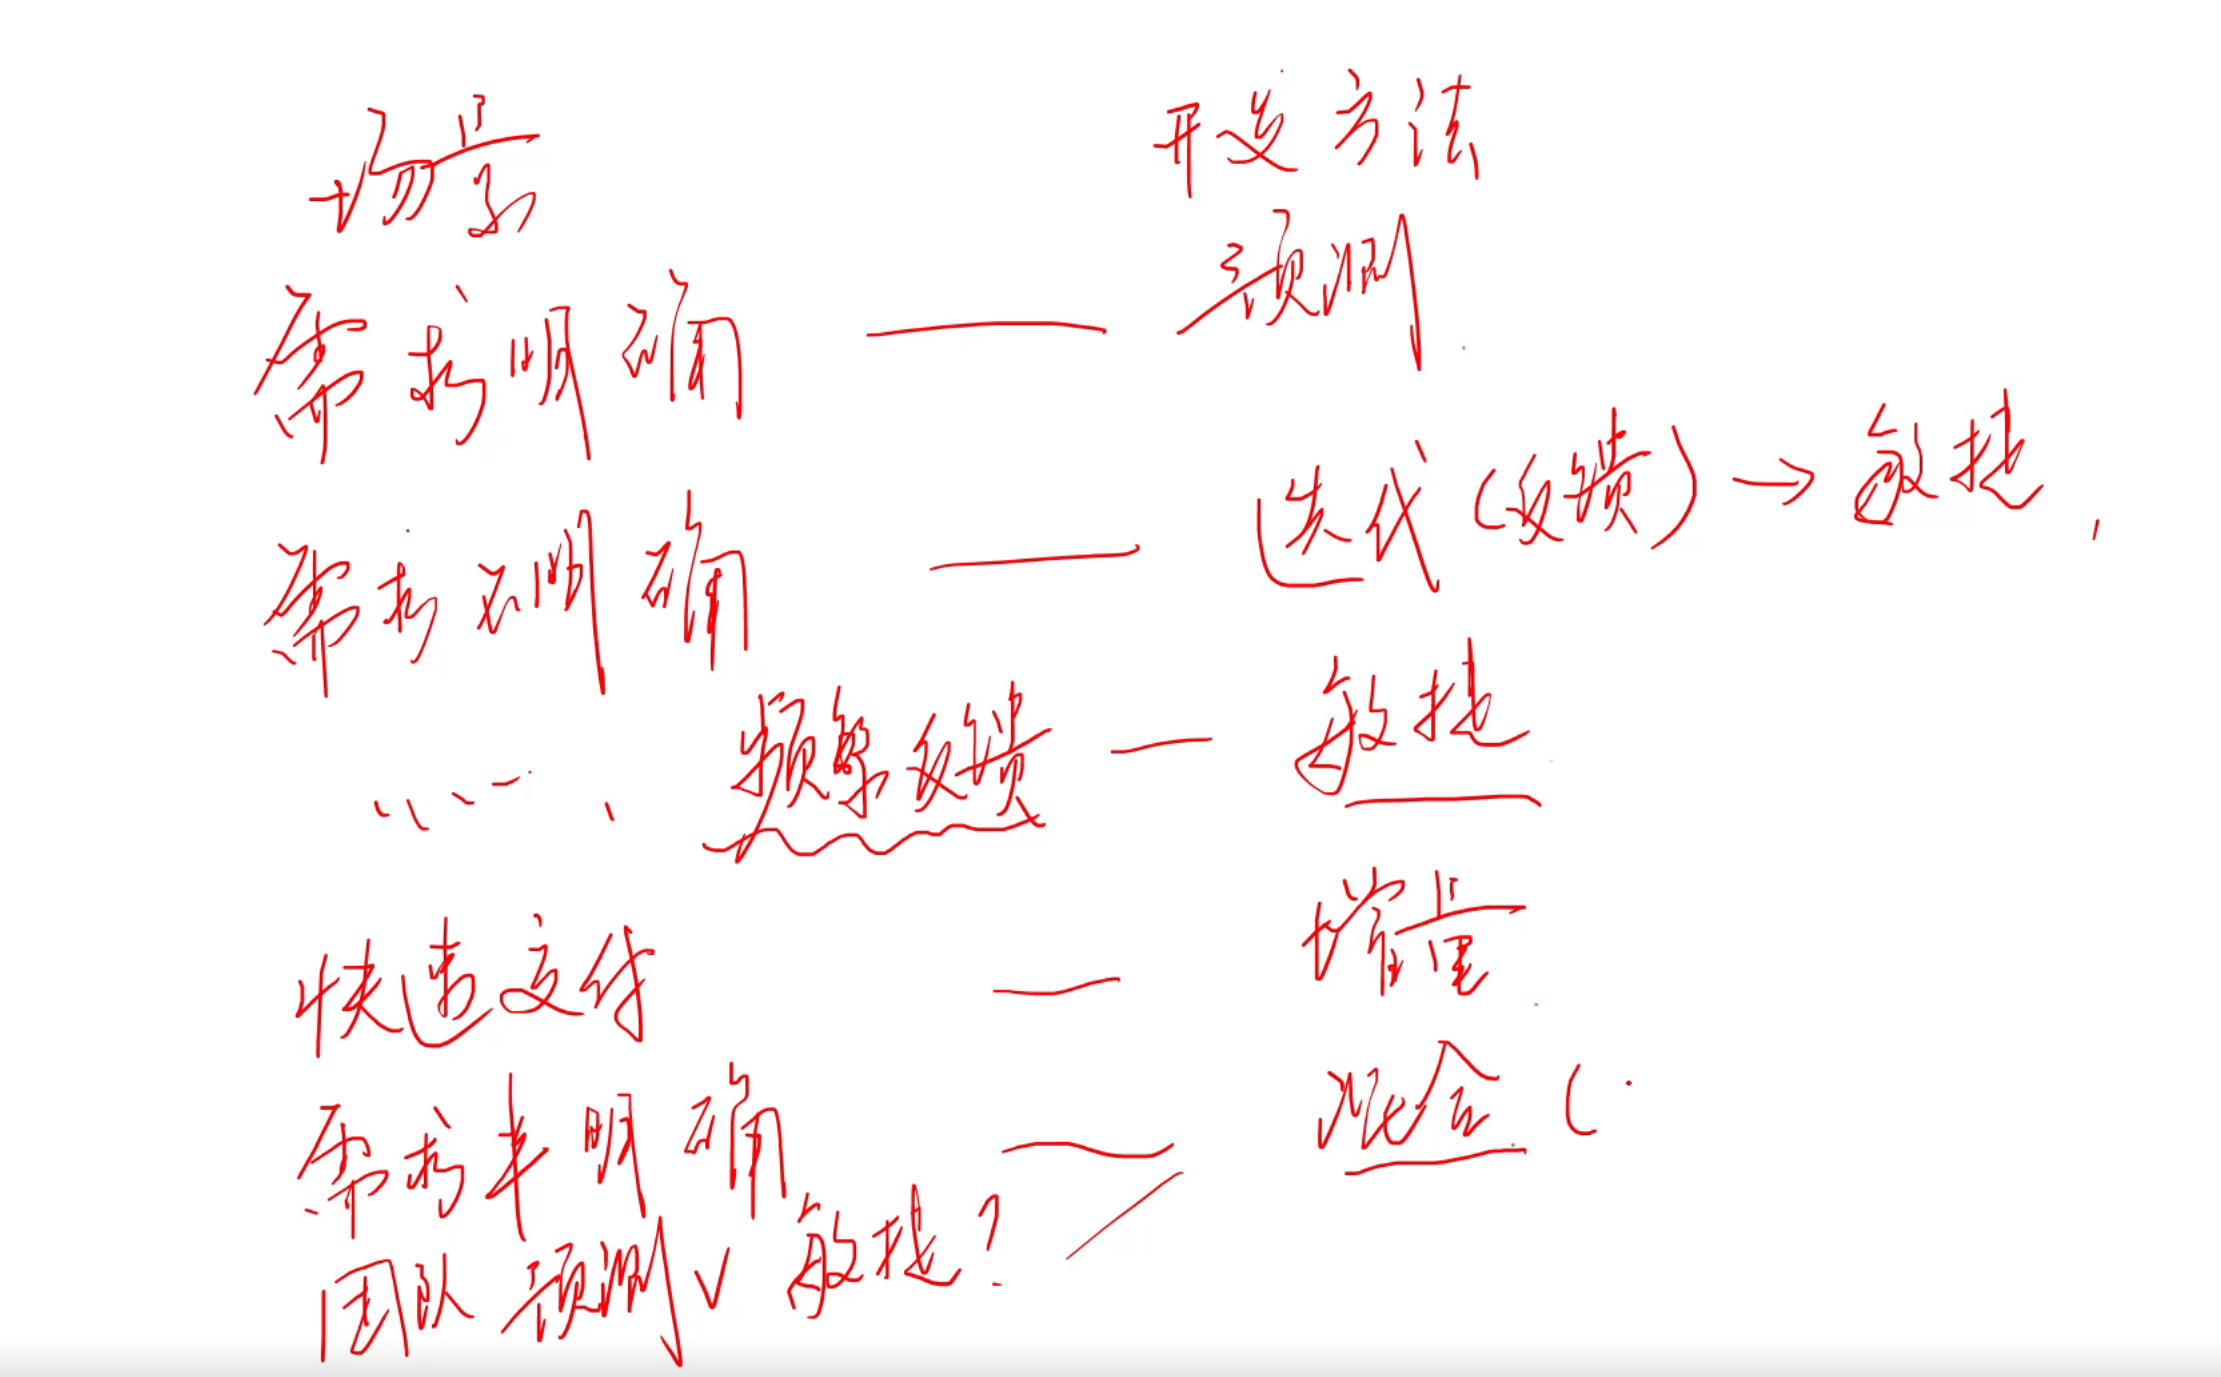 场景 开发方法
需求明确 —— 预测
需求不明确 —— 迭代(反馈)→敏捷,
…… 频繁反馈 — 敏捷
快速交付 — 增量
需求半明确 — 混合(
团队 预测√ 敏捷?